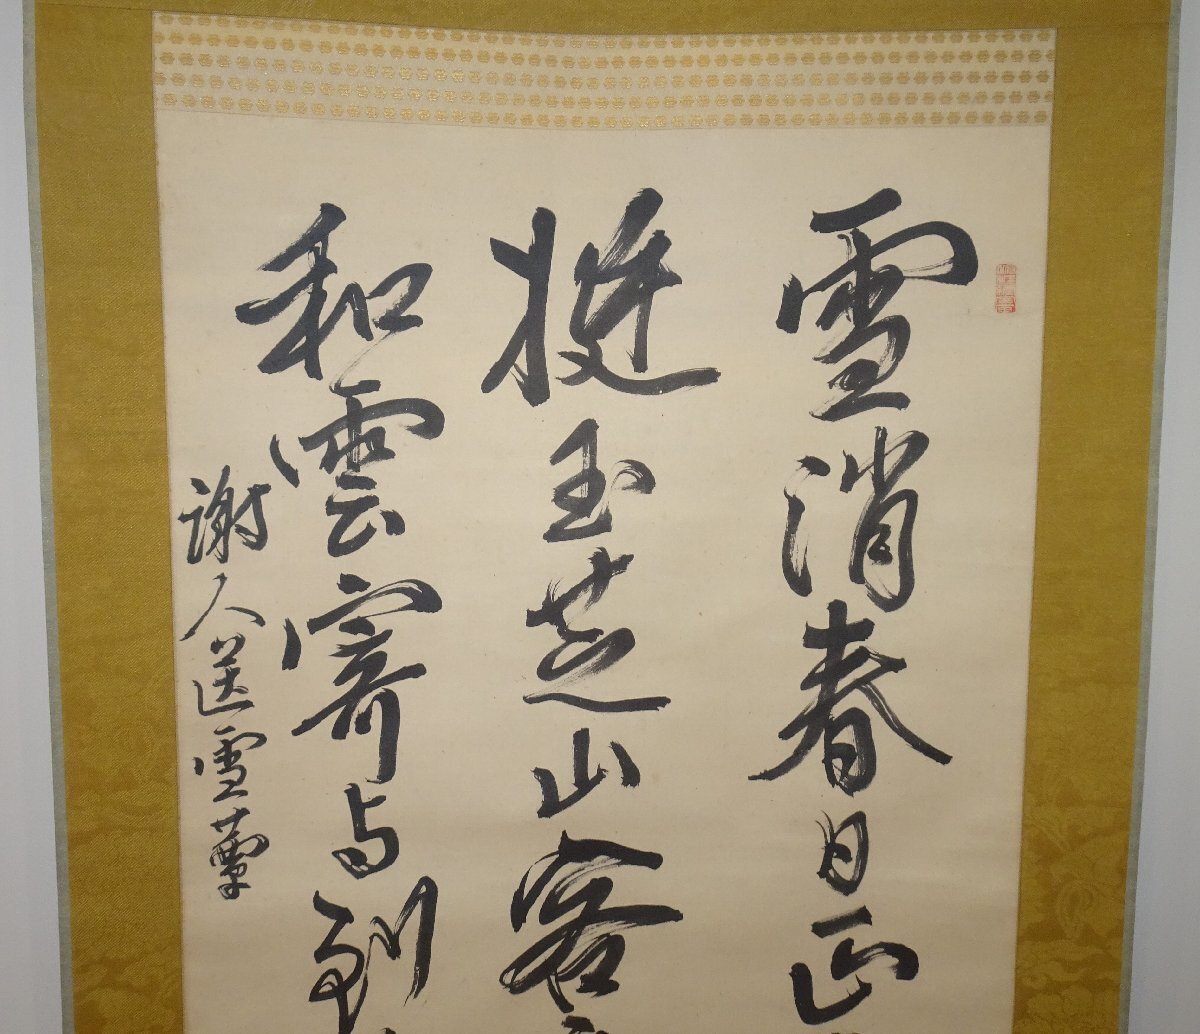 雪消春日正
挺玉芝山客
和雲寄与到
謝人送雪蕈